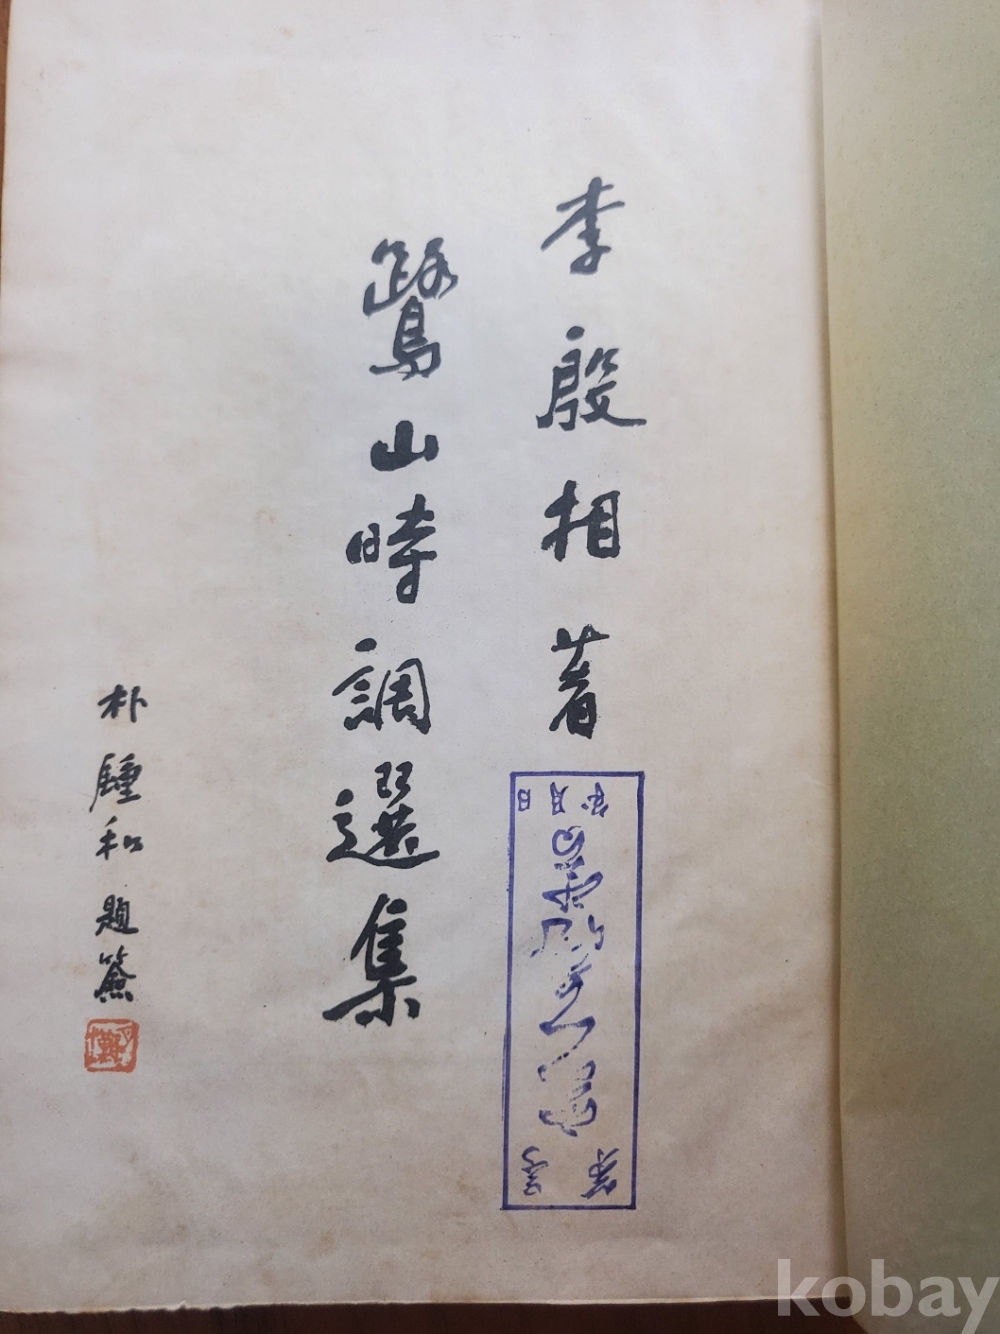 李殷相著
鷺山時調選集
朴鍾和題簽
年月日
第 号
kobay